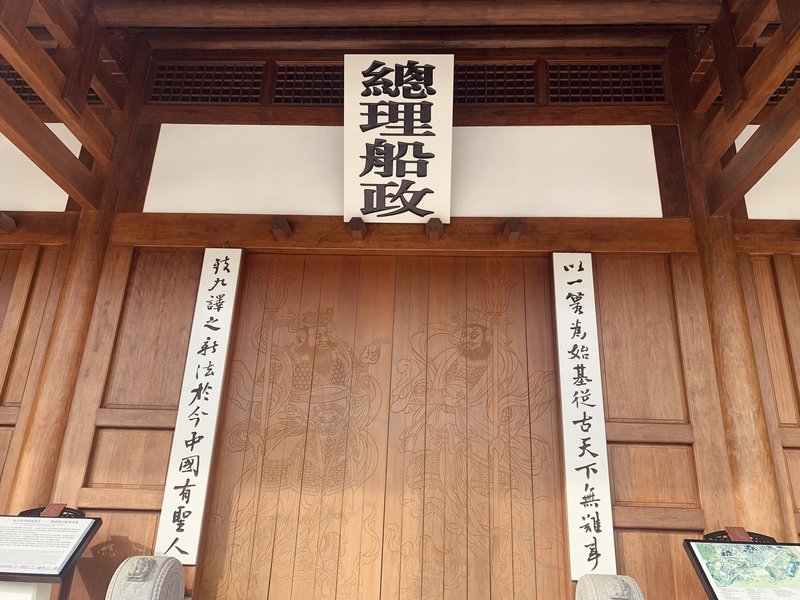 總理船政
以一簣為始基從古天下無難事
致九譯之新法於今中國有聖人